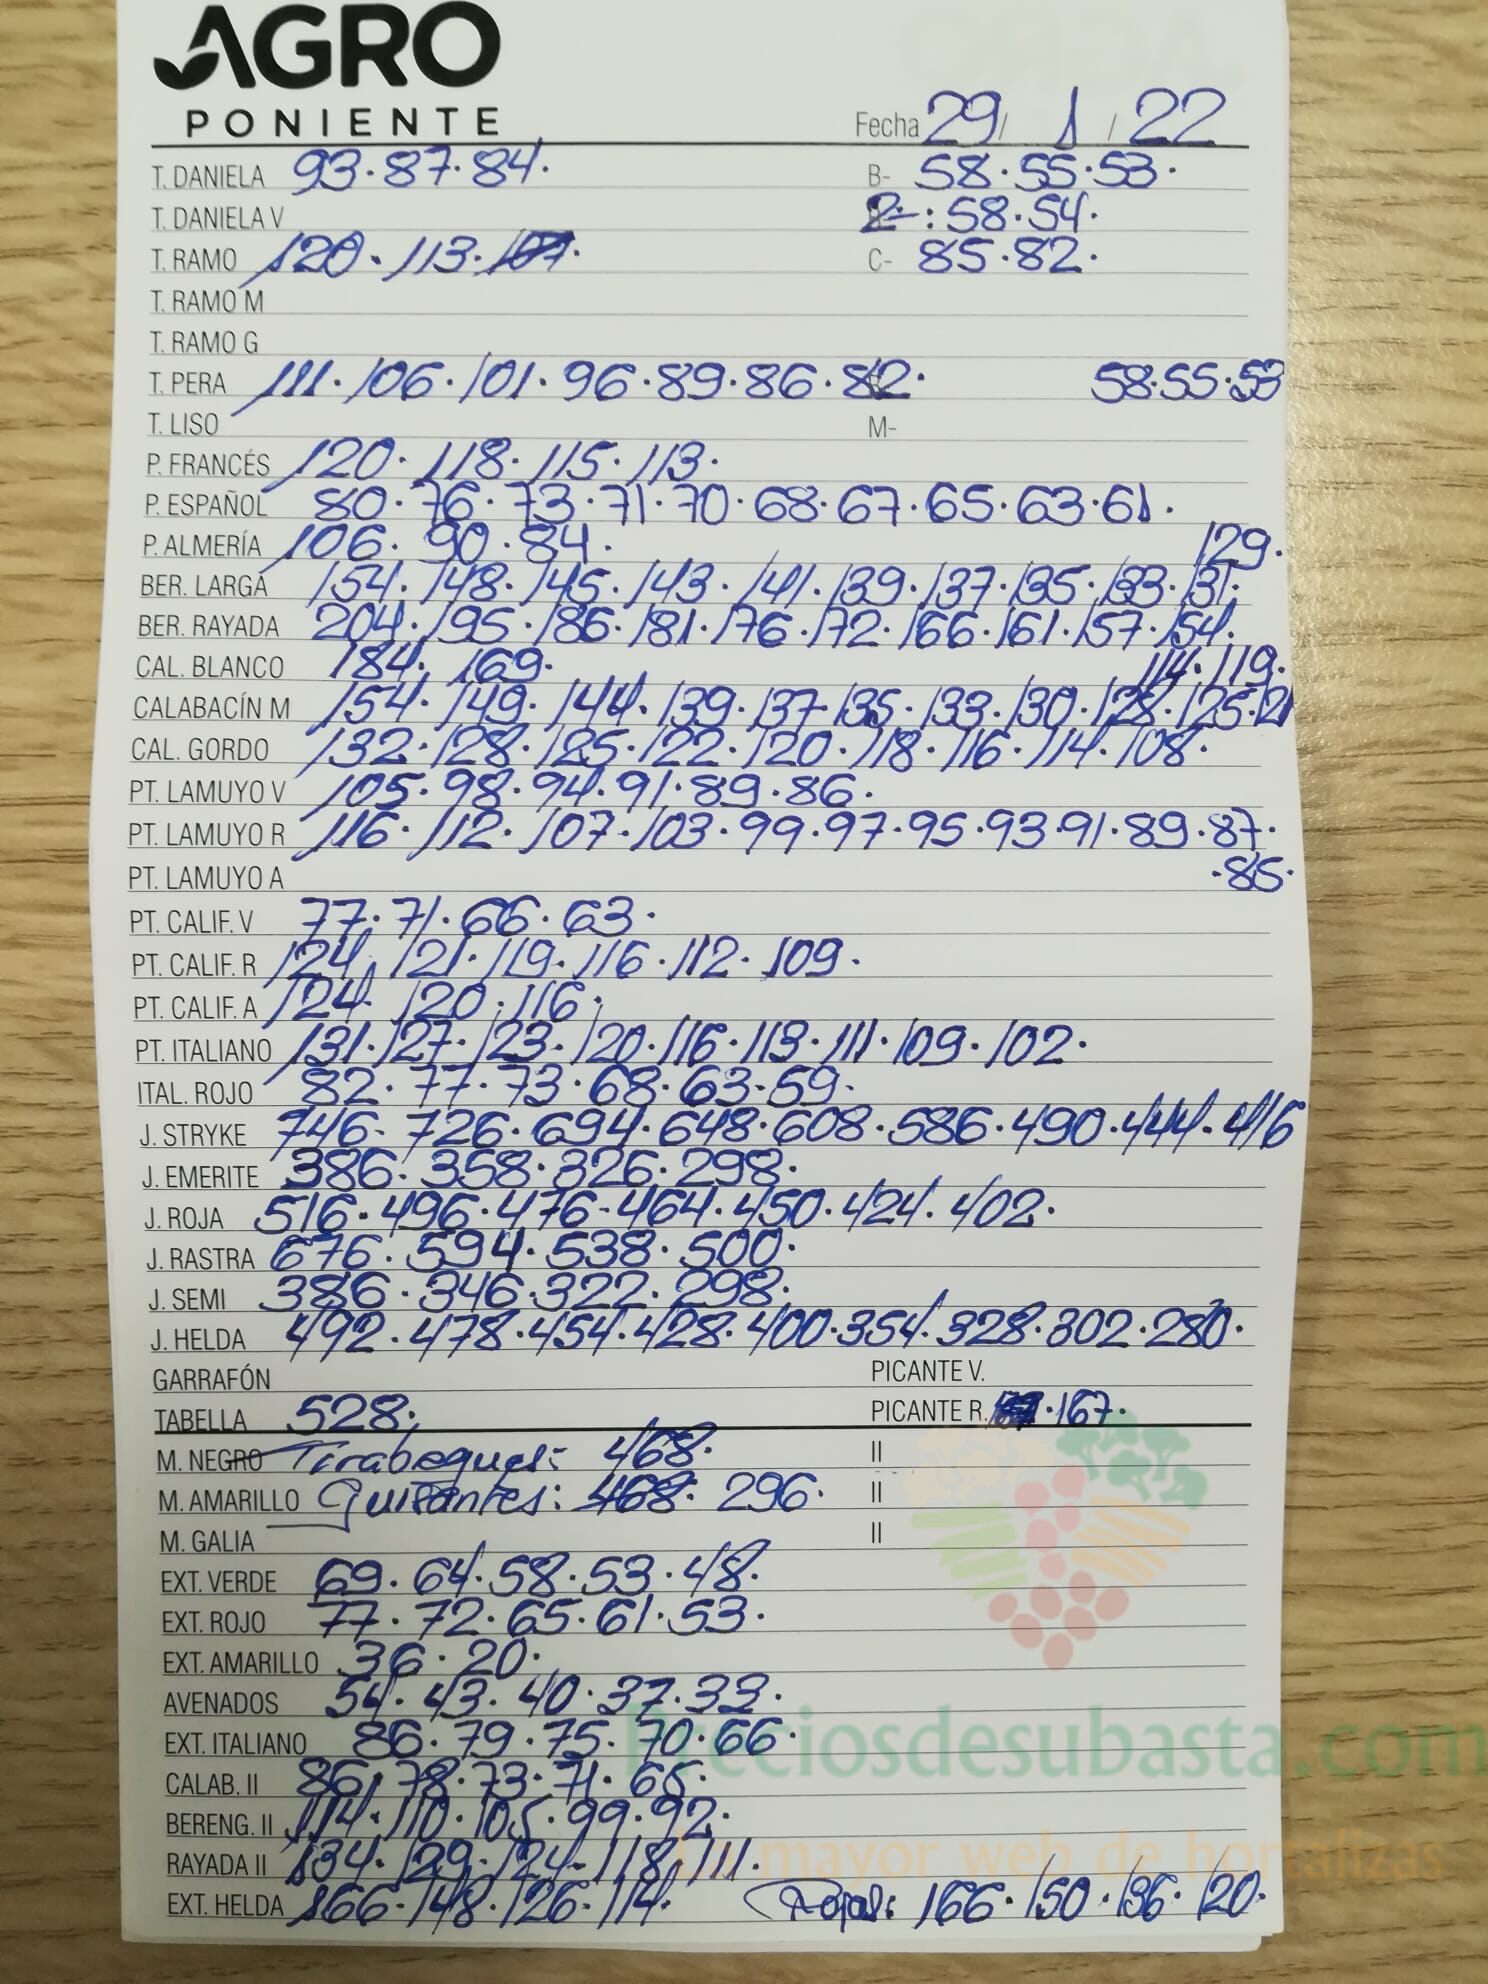 AGRO
PONIENTE
Fecha 29/ 1 / 22
T. DANIELA 93.87.84. B- 58.55.53.
T. DANIELA V 2-: 58.54.
T. RAMO 120.113.107. C- 85.82.
T. RAMO M
T. RAMO G
T. PERA 111.106.101.96.89.86.82. 58.55.53
T. LISO M-
P. FRANCÉS 120.118.115.113.
P. ESPAÑOL 80.76.73.71.70.68.67.65.63.61.
P. ALMERÍA 106.90.84. 129.
BER. LARGA 154.148.145.143.141.139.137.135.133.131.
BER. RAYADA 204.195.186.181.176.172.166.161.157.154.
CAL. BLANCO 184.169. 114.119.
CALABACÍN M 154.149.144.139.137.135.133.130.128.125.121
CAL. GORDO 132.128.125.122.120.118.116.114.108.
PT. LAMUYO V 105.98.94.91.89.86.
PT. LAMUYO R 116.112.107.103.99.97.95.93.91.89.87.
PT. LAMUYO A .85.
PT. CALIF. V 77.71.66.63.
PT. CALIF. R 124.121.119.116.112.109.
PT. CALIF. A 124.120.116.
PT. ITALIANO 131.127.123.120.116.113.111.109.102.
ITAL. ROJO 82.77.73.68.63.59.
J. STRYKE 746.726.694.648.608.586.490.444.416
J. EMERITE 386.358.326.298.
J. ROJA 516.496.476.464.450.424.402.
J. RASTRA 676.594.538.500.
J. SEMI 386.346.322.298.
J. HELDA 492.478.454.428.400.354.328.302.280.
GARRAFÓN PICANTE V.
TABELLA 528. PICANTE R. .167.
M. NEGRO Tirabeques: 468. II
M. AMARILLO Guisantes: 468. 296. II
M. GALIA II
EXT. VERDE 69.64.58.53.48.
EXT. ROJO 77.72.65.61.53.
EXT. AMARILLO 36.20.
AVENADOS 54.43.40.37.33.
EXT. ITALIANO 86.79.75.70.66.
Preciosdesubasta.com
CALAB. II 86.78.73.71.65.
BERENG. II 114.110.105.99.92.
RAYADA II 134.129.124.118.111.
La mayor web de hortalizas
EXT. HELDA 166.148.126.114. Rojas: 166.150.136.120.